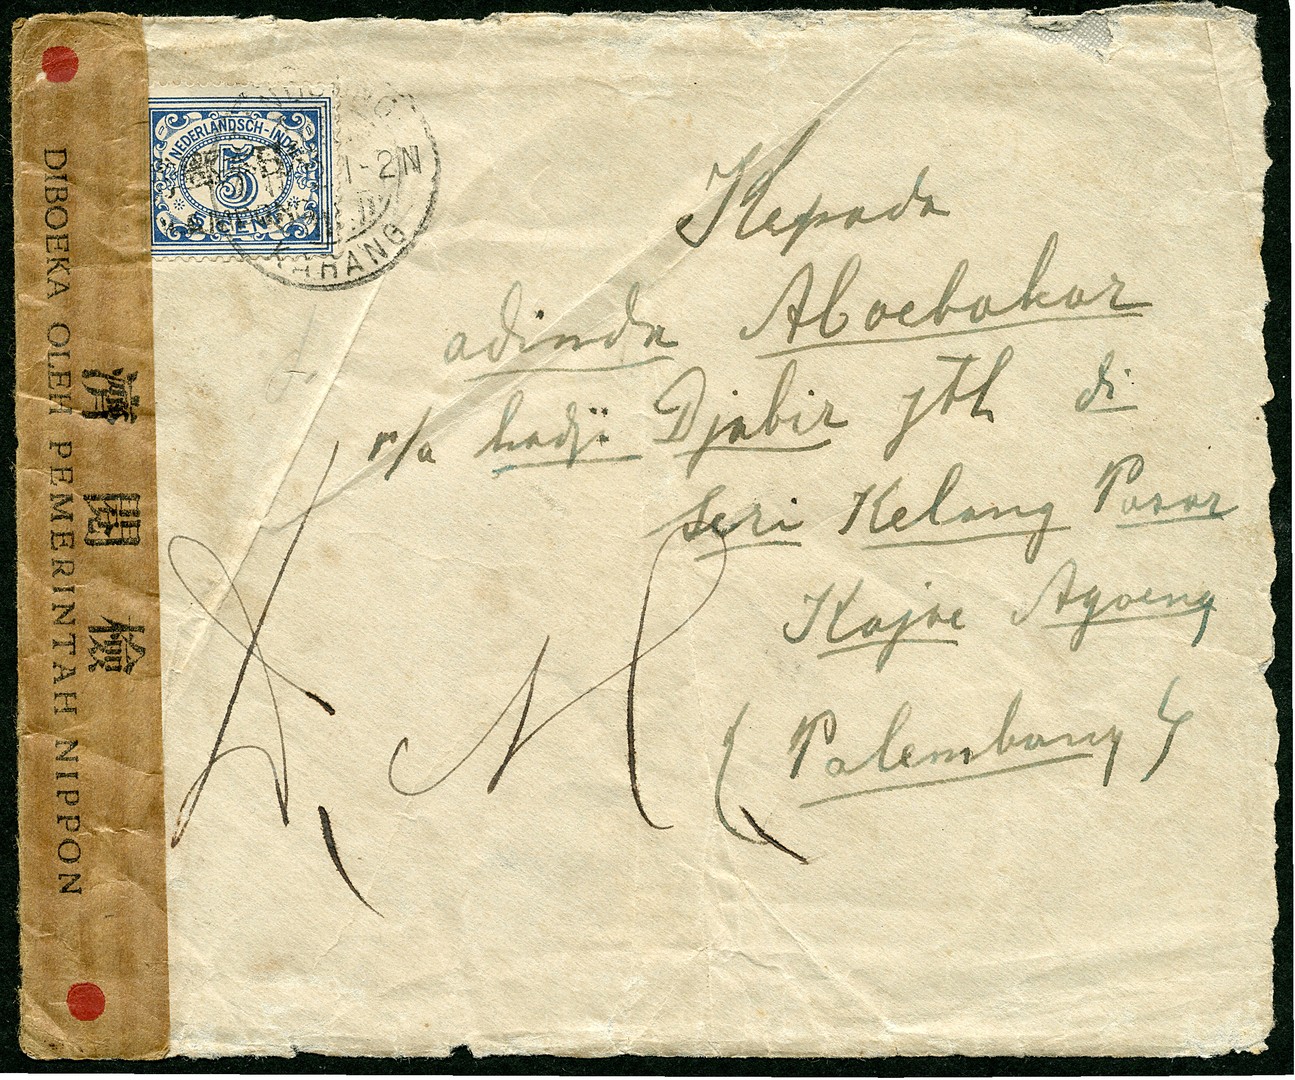 DIBOEKA OLEH PEMERINTAH NIPPON
檢閲濟
NEDERLANDSCH-INDIË
5
CENT
1-2N
KARANG
Kepada
adinda Aboebakar
p/a hadji Djabir jth di
Seri Kelang Pasar
Kajoe Agoeng
(Palembang)